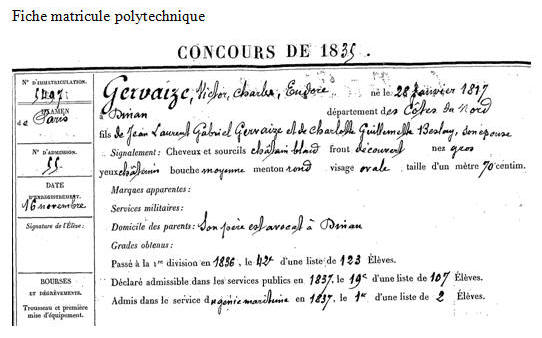 Fiche matricule polytechnique
CONCOURS DE 1835.
N° D'IMMATRICULATION.
5497
EXAMEN
de Paris
N° D'ADMISSION.
55
DATE
D'ENREGISTREMENT.
16 novembre
Signature de l'Élève:
BOURSES
ET DÉGRÈVEMENTS.
Trousseau et première
mise d'équipement.
Gervaize, Victor, Charles, Eudore né le 28 Janvier 1817
à Dinan département des Côtes du Nord
fils de Jean Laurent Gabriel Gervaize et de Charlotte Guillemette Beslay, son épouse
Signalement: Cheveux et sourcils châtain blond front découvert nez gros
yeux châtains bouche moyenne menton rond visage ovale taille d'un mètre 70 centim.
Marques apparentes:
Services militaires:
Domicile des parents: Son père est avocat à Dinan
Grades obtenus:
Passé à la 1re division en 1836, le 42e d'une liste de 123 Élèves.
Déclaré admissible dans les services publics en 1837, le 19e d'une liste de 107 Élèves.
Admis dans le service du génie maritime en 1837, le 1er d'une liste de 2 Élèves.